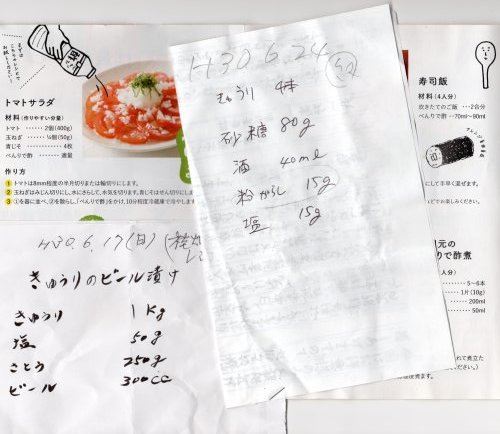 まずは
これらレシピで
お試しください!
トマトサラダ
材料(作りやすい分量)
トマト ……2個(400g)
玉ねぎ ………¼個(50g)
青じそ …………4枚
べんりで酢 ………適量
作り方
1 トマトは8mm程度の半月切りまたは輪切りにします。
2 玉ねぎはみじん切りにし、水にさらして、水気を切ります。青じそはせん切りにします。
3 ①を器に並べ、②を散らし、「べんりで酢」をかけ、10分程度冷蔵庫で冷やします。
H30.6.24
きゅうり 4本
砂糖 80g
酒 40ml
粉がらし 15g
塩 15g
寿司飯
材料(4人分)
炊きたてのご飯 …2合分
べんりで酢 …70ml~90ml
にして手早く混ぜます。
元の
りで酢煮
人分)
5~6本
1片(10g)
200ml
50ml
れて煮立た
ください。)
H30.6.17(日)
きゅうりのビール漬け
きゅうり 1Kg
塩 50g
さとう 250g
ビール 300cc